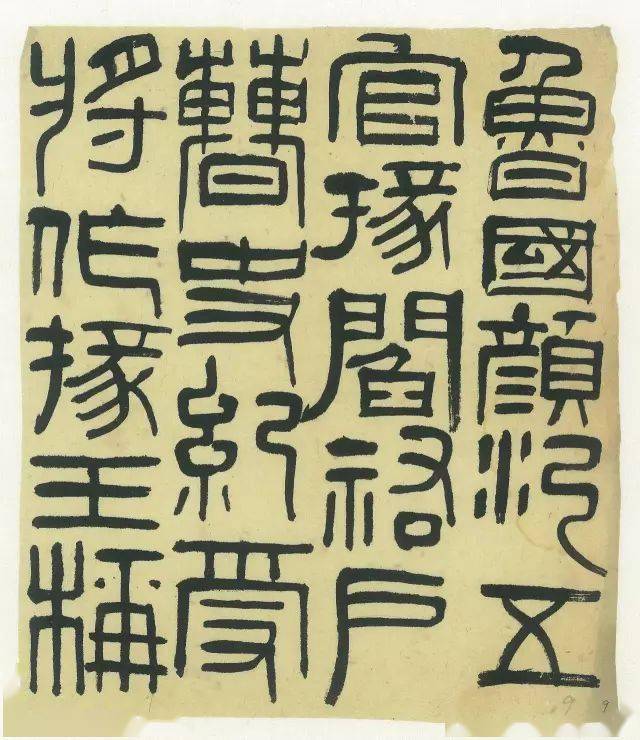 魯國顏五
官掾閻祐戶
曹史紀受
將作掾王